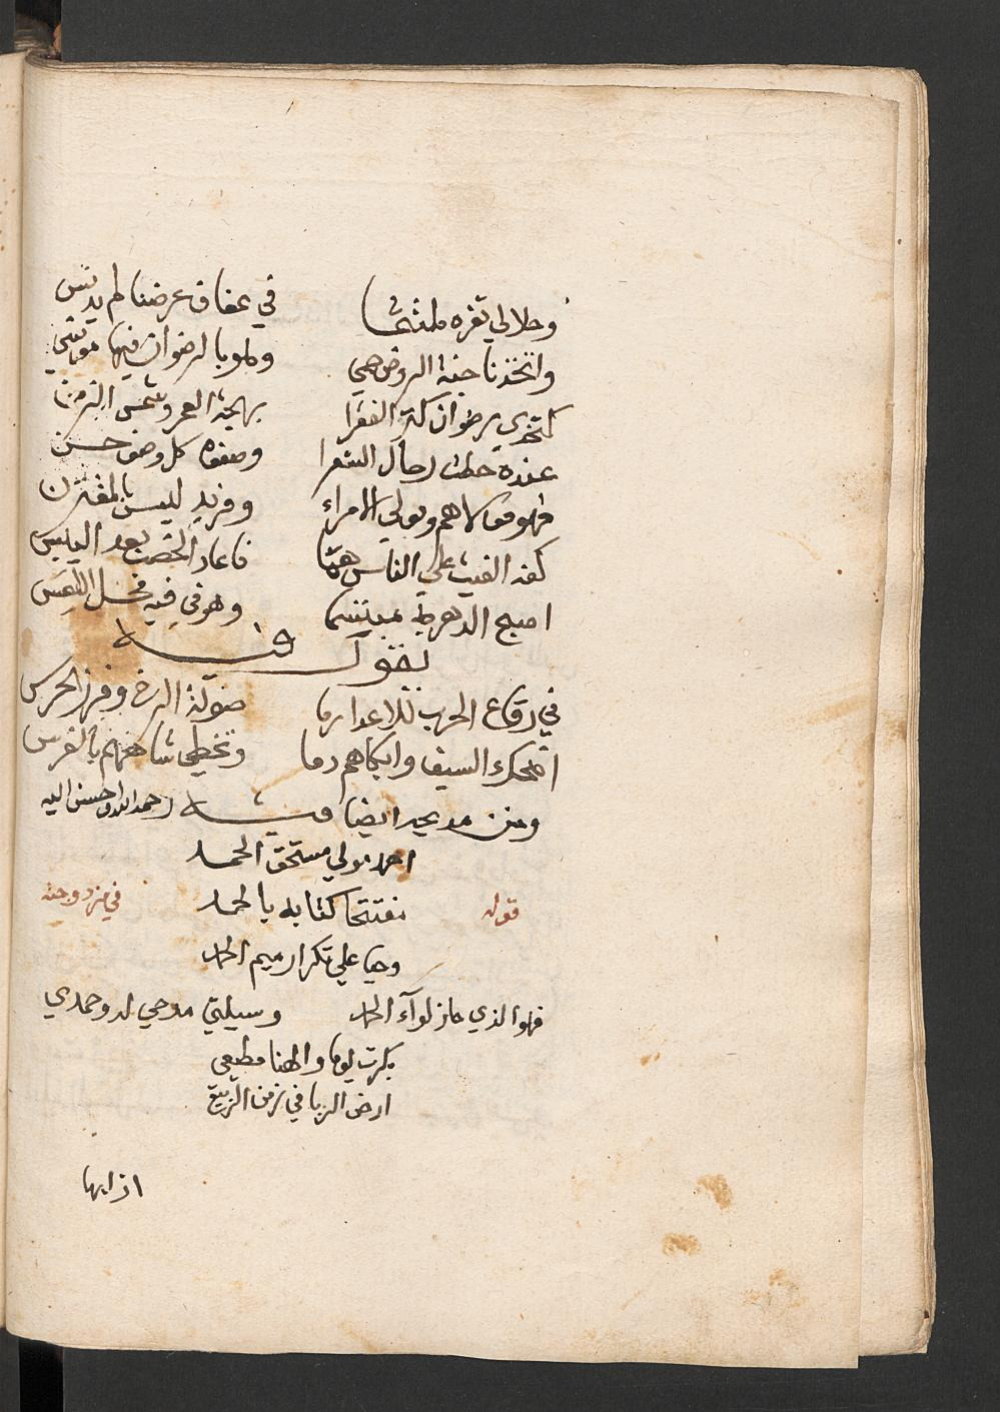 وحلا لي ثغره ملتثما في عفاف عرضنا لم يدنس
واتخذنا جنة الروض حمي ولهونا لرضوان فيها مؤنسي
كتخدي رضوان كنز الفقرا بهجة العمر وشمس الزمن
عنده حطت رحال الشعرا وصفوه كل وصف حسن
فهو مولاهم ومولي الامراء وفريد ليس بالمقترن
كفه الغيث علي الناس هما فاعاد الخصب بعد اليبس
اصبح الدهر به مبتسما وهو في فيه محل اللعس
يقول منه
في رقاع الحرب للاعدا رما صولة الرخ وفرز الحرس
اضحك السيف وابكاهم دما وتخطي شاههم بالفرس
ومن مديحه ايضا فيه رحمه الله واحسن اليه
احمد مولي مستحق الحمد
قوله مفتتحا كتابه بالحمد في مزدوجته
وحيا علي تكرار ميم الحمد
فهو الذي حاز لوآء الحمد وسيلتي مدحي له وحمدي
بكرت يوما والهنا مطيعي
ارض الربا في زمن الربيع
اذا بها